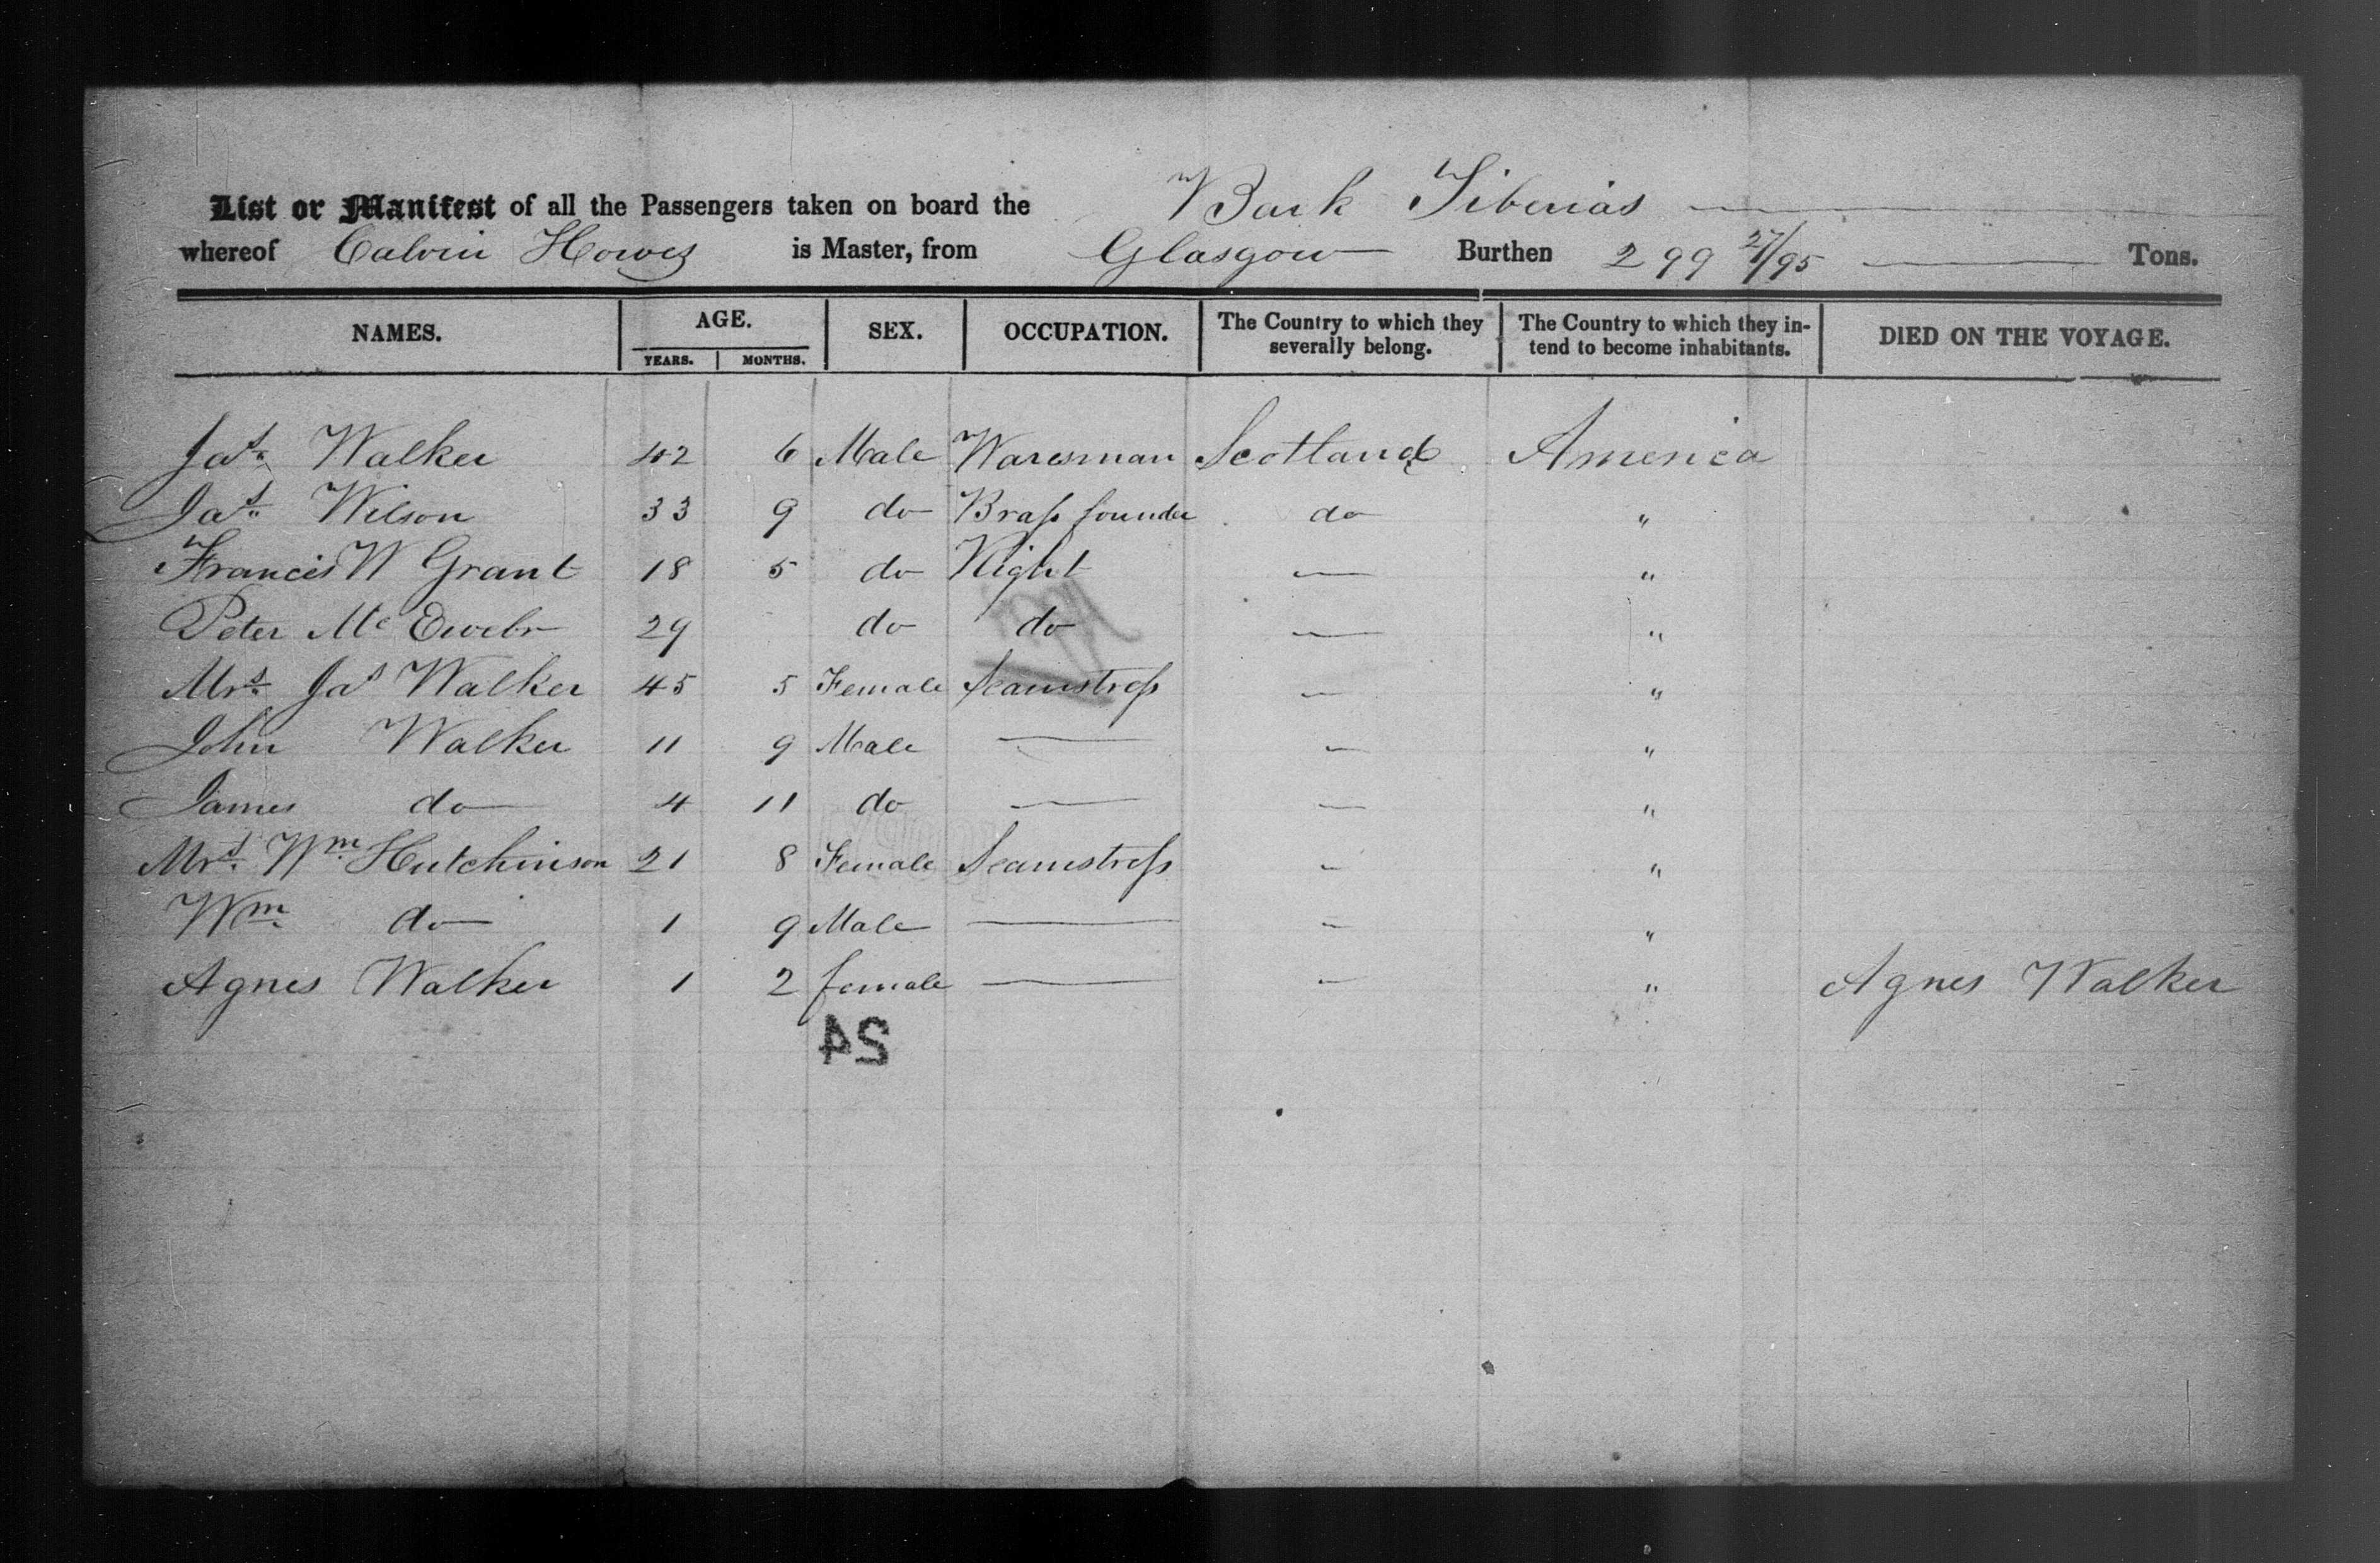 List or Manifest of all the Passengers taken on board the Bark Tiberias
whereof Calvin Howes is Master, from Glasgow Burthen 299 27/95 Tons.
NAMES. AGE. SEX. OCCUPATION. The Country to which they severally belong. The Country to which they intend to become inhabitants. DIED ON THE VOYAGE.
YEARS. MONTHS.
Jas. Walker 42 6 Male Waresman Scotland America
Jas. Wilson 33 9 do Brass founder do "
Francis W Grant 18 5 do — "
Peter Mc 29 do do — "
Mrs. Jas Walker 45 5 Female Seamstress — "
John Walker 11 9 Male — — "
James do 4 11 do — — "
Mrs. Wm. Hutchinson 21 8 Female Seamstress — "
Wm. do 1 9 Male — — "
Agnes Walker 1 2 female — — " Agnes Walker